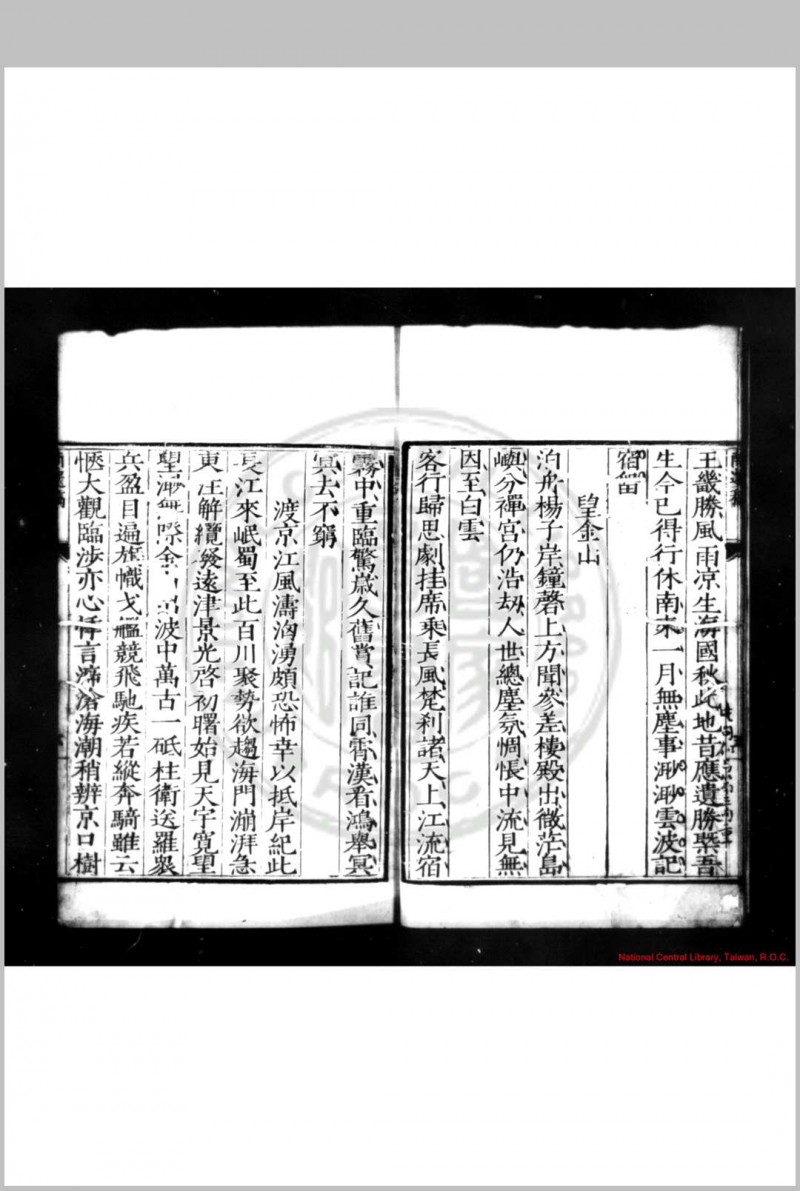 王畿勝風雨凉生海國秋此地昔應遺勝槩吾
生今已得行休南來一月無塵事渺渺雲波記
宿留
望金山
泊舟楊子岸鐘磬上方聞參差樓殿出微茫島
嶼分禪宮仍浩刼人世總塵氛惆悵中流見無
因至白雲
客行歸思劇挂席乘長風梵刹諸天上江流宿
霧中重臨驚歲久舊賞記誰同霄漢看鴻舉冥
冥去不窮
渡京江風濤洶湧頗恐怖幸以抵岸紀此
長江來岷蜀至此百川聚勢欲趨海門崩湃急
東注解纜發遠津景光啓初曙始見天宇寬望
望渺無際金山出波中萬古一砥柱衛送羅衆
兵盈目遍旌幟戈艦競飛馳疾若縱奔騎雖云
愜大觀臨涉亦心悸言歸滄海潮稍辨京口樹
National Central Library, Taiwan, R.O.C.